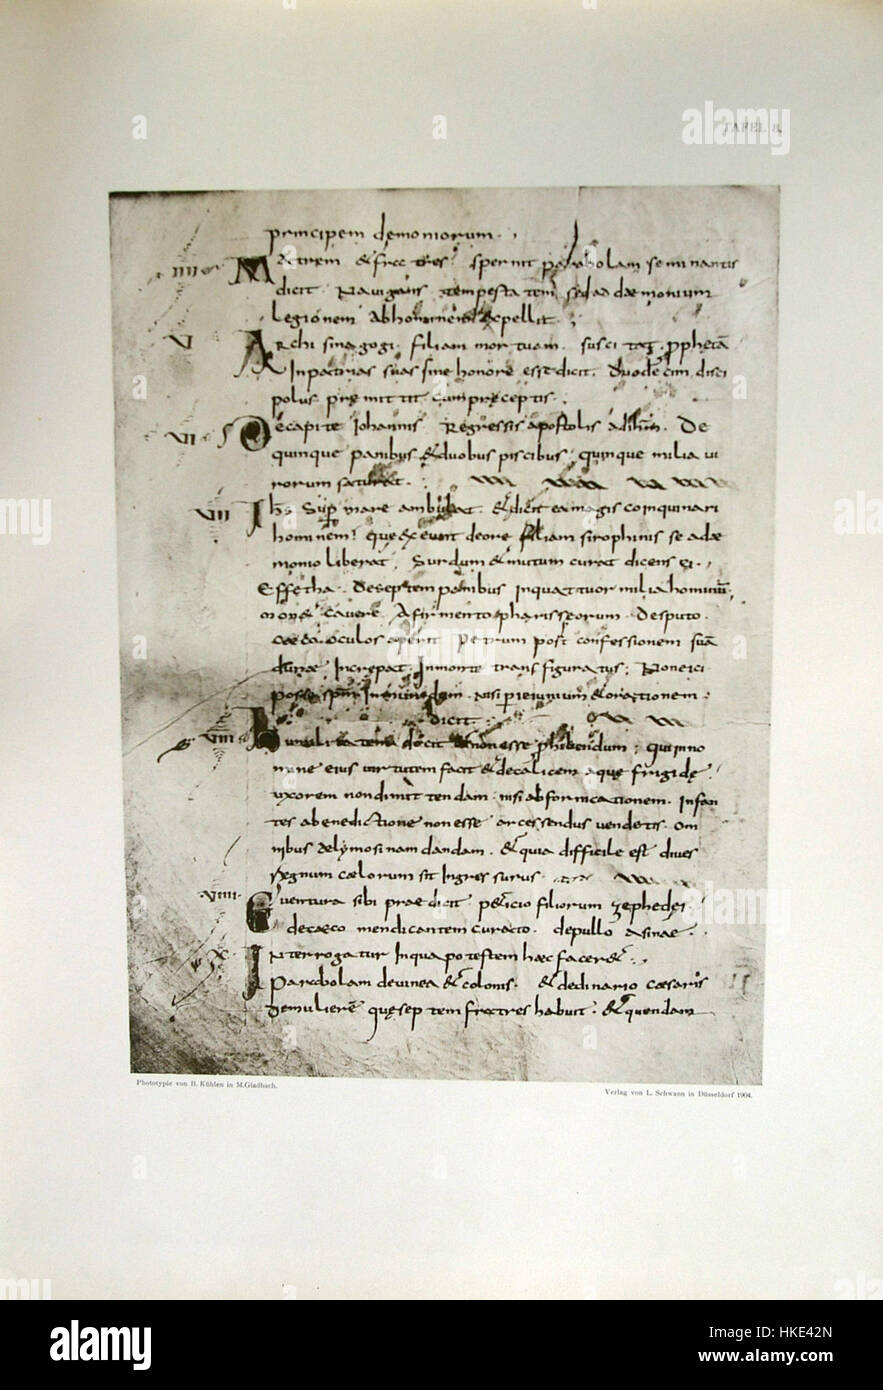 TAFEL 8.
principem demoniorum.
IIII Matrem & fratres spernit parabolam seminantis
dicit. Navigans tempestatem sedat daemonium
legionem ab homine expellit.
VI Archisinagogi filiam mortuam suscitat prophetā
In patrias suas sine honore esse dicit. Duodecim disci
polus premittit cum preceptis.
VII Decapite Iohannis Regressis apostolis De
quinque panibus & duobus piscibus quinque milia vi
rorum saturat.
VIII Ihs Supra mare ambulat. & dicit ea magis coinquinari
hominem que exeunt de ore filiam sirophinis se a dae
monio liberat. Surdum & mutum curat dicens ei.
Effetha. De septem panibus In quattuor milia hominū
mon& cavere A firmento pharisseorum. Desputo
oculos aperit petrum post confessionem suā
Increpat. In monte transfiguratus; Non eici
posse nisi per ieiunium & orationem.
dicit
VIII docit non esse phibendum; qui in no
mine eius virtutem facit & de calicem aque frigide
uxorem non dimittendam nisi ab fornicationem. Infan
tes a benedictione non esse arcessendus vendetis. Om
nibus delymosinam dandam. & quia difficile est dives
regnum caelorum sit Ingressurus.
VIIII Eventura sibi praedicit p&icio filiorum zephedei
de caeco mendicantem curato. de pullo asinae.
X Interrogatur In qua potestem haec facer&.
Parabolam de vinea & colonis. & de dinario caesaris
De mulierē que septem fratres habuit. & quendam
Phototypie von B. Kühlen in M.Gladbach.
Verlag von L. Schwann in Düsseldorf 1904.
alamy
Image ID: HKE42N
www.alamy.com